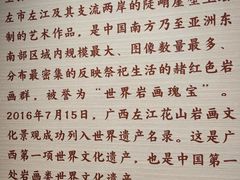 左市左江及其支流两岸的陡峭崖壁上绘
制的艺术作品，是中国南方乃至亚洲东
南部区域内规模最大、图像数量最多、
分布最密集的反映祭祀生活的赭红色岩
画群，被誉为“世界岩画瑰宝”。
2016年7月15日，广西左江花山岩画文
化景观成功列入世界遗产名录。这是广
西第一项世界文化遗产，也是中国第一
处岩画类世界文化遗产